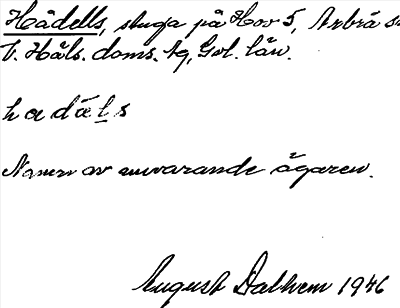 Hådells, stuga på Hov 5, Arbrå s
V. Häls. doms. tg, Gvl. län.
hadäls
Namn av nuvarande ägaren.
August Dalhem 1946